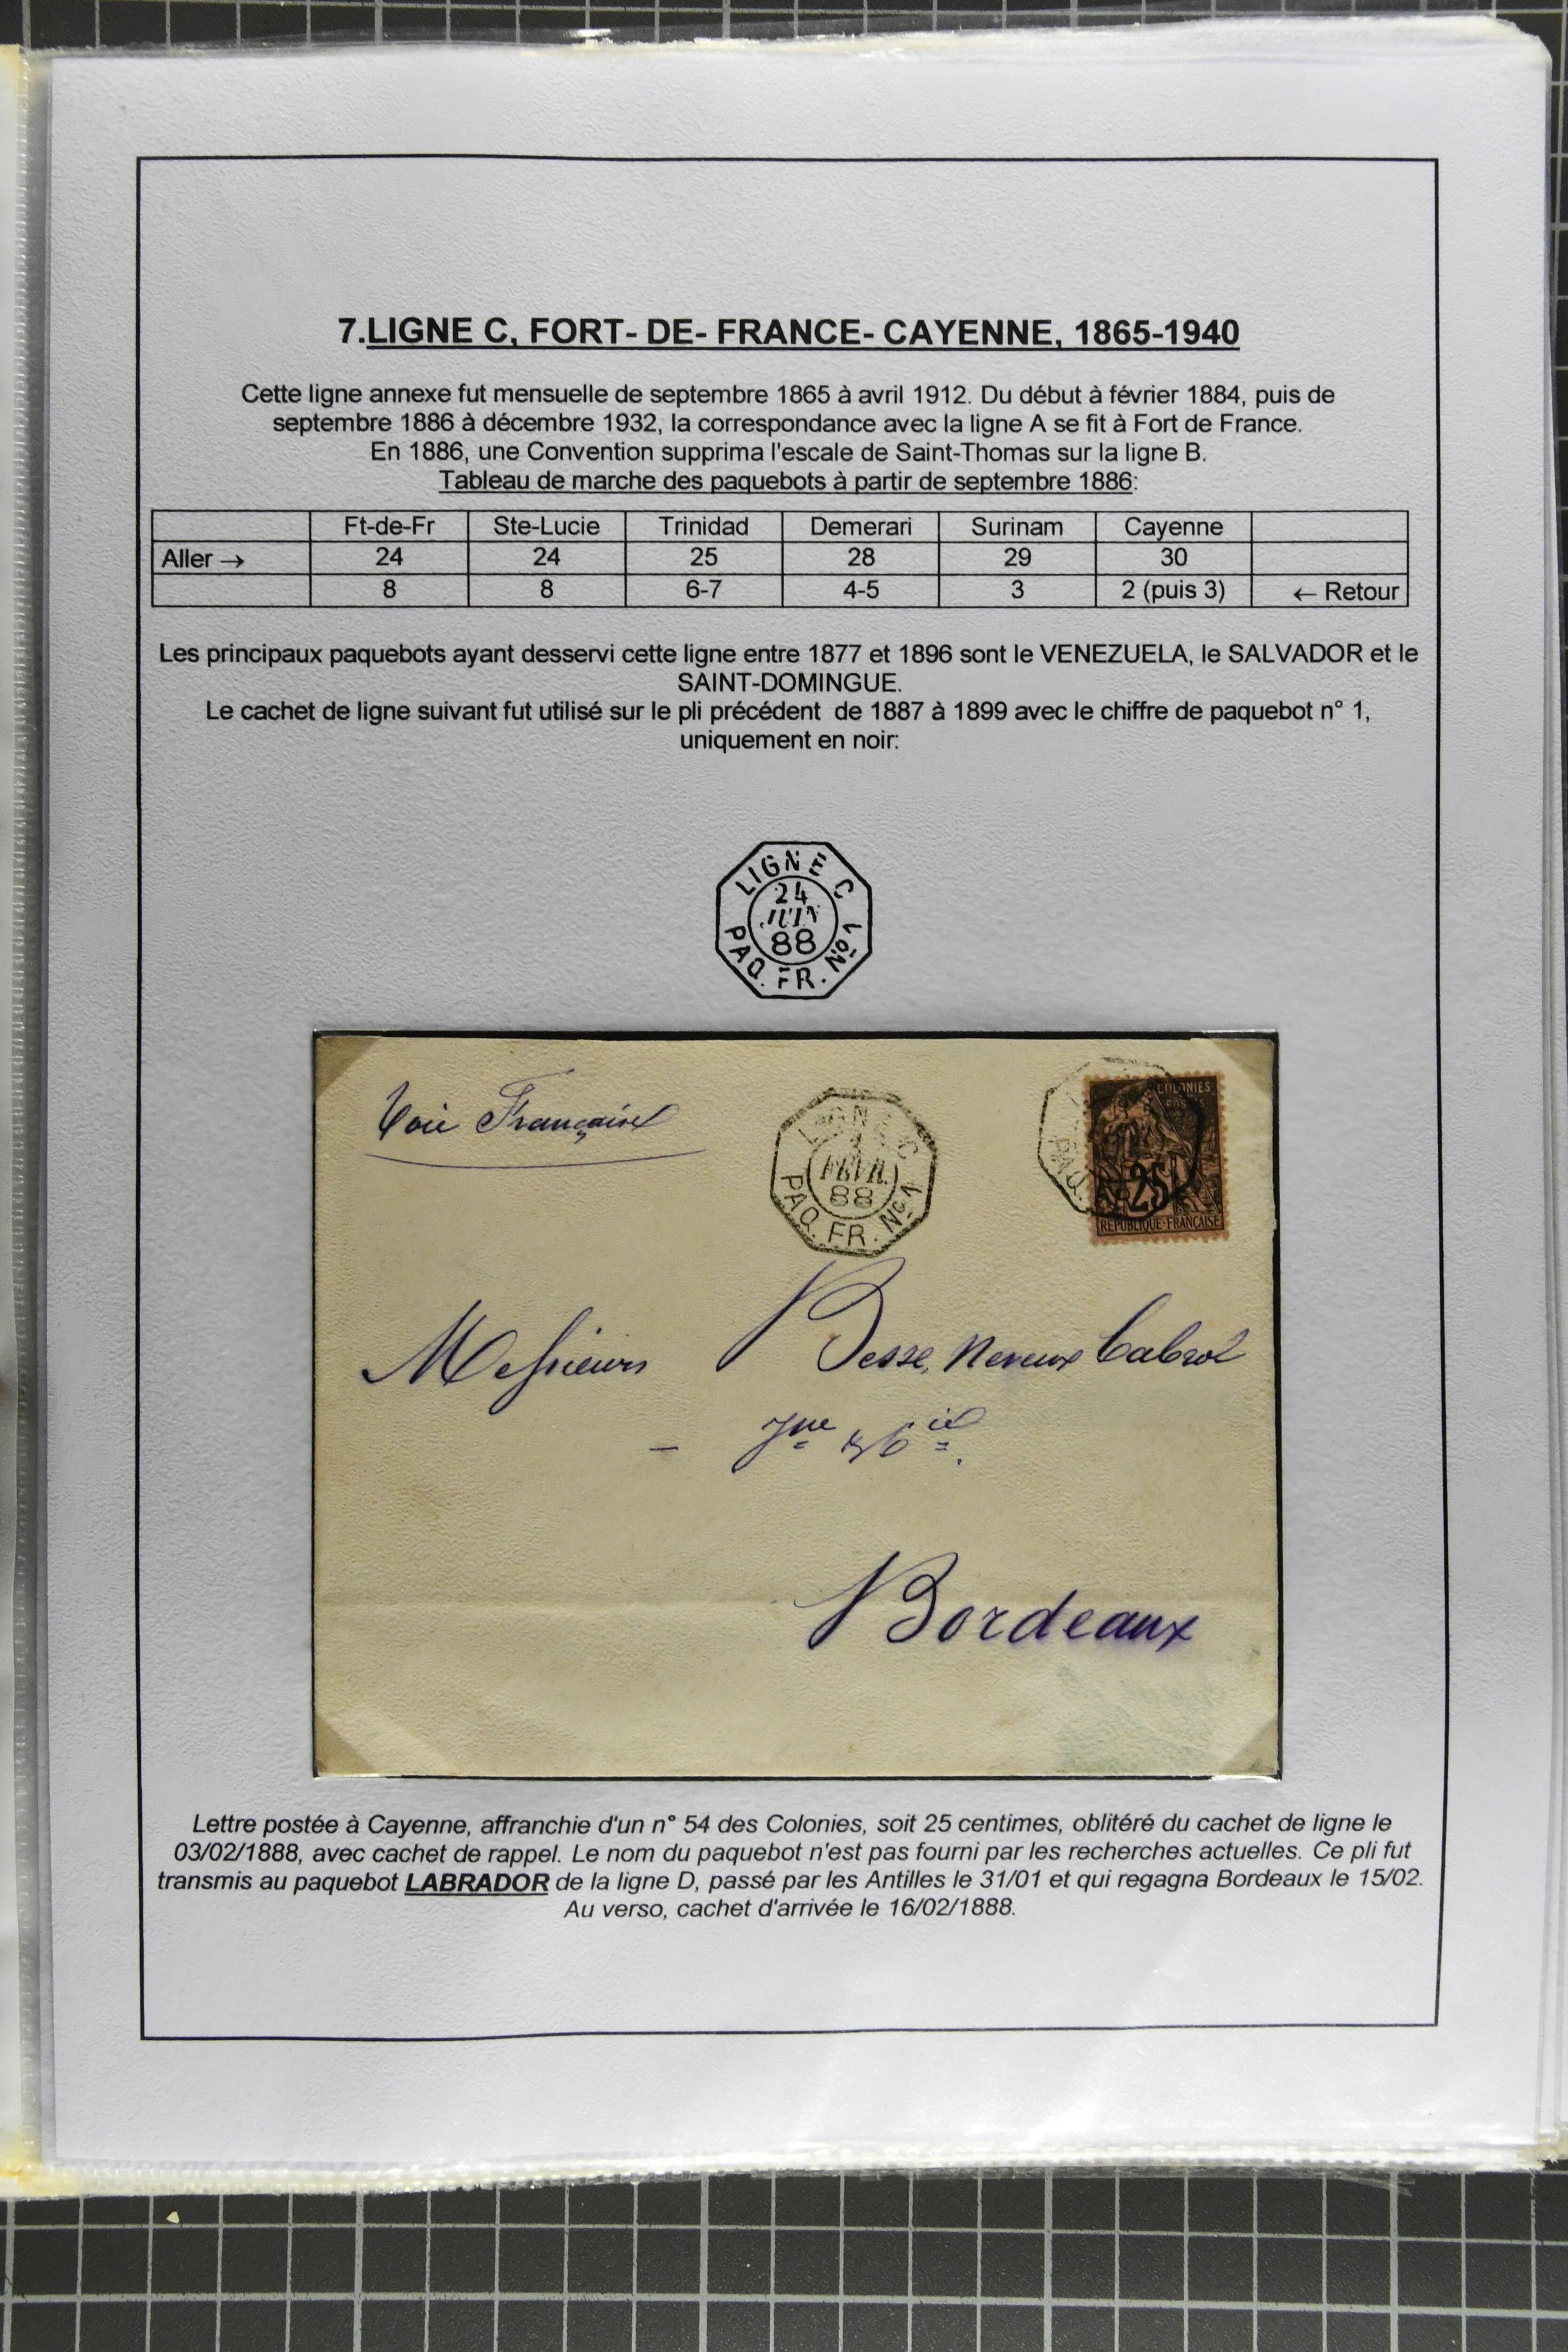 7.LIGNE C, FORT- DE- FRANCE- CAYENNE, 1865-1940
Cette ligne annexe fut mensuelle de septembre 1865 à avril 1912. Du début à février 1884, puis de
septembre 1886 à décembre 1932, la correspondance avec la ligne A se fit à Fort de France.
En 1886, une Convention supprima l'escale de Saint-Thomas sur la ligne B.
Tableau de marche des paquebots à partir de septembre 1886:
Ft-de-Fr Ste-Lucie Trinidad Demerari Surinam Cayenne
Aller → 24 24 25 28 29 30
8 8 6-7 4-5 3 2 (puis 3) ← Retour
Les principaux paquebots ayant desservi cette ligne entre 1877 et 1896 sont le VENEZUELA, le SALVADOR et le
SAINT-DOMINGUE.
Le cachet de ligne suivant fut utilisé sur le pli précédent de 1887 à 1899 avec le chiffre de paquebot n° 1,
uniquement en noir:
LIGNE C
24
JUIN
88
PAQ. FR. Nº 1
Voie Française
LIGNE C
FÉVR.
88
PAQ. FR. Nº 1
COLONIES
POSTES
25
REPUBLIQUE·FRANÇAISE
PAQ.
Messieurs Besse, Neveux Cabrol
Jne & Cie.
Bordeaux
Lettre postée à Cayenne, affranchie d'un n° 54 des Colonies, soit 25 centimes, oblitéré du cachet de ligne le
03/02/1888, avec cachet de rappel. Le nom du paquebot n'est pas fourni par les recherches actuelles. Ce pli fut
transmis au paquebot LABRADOR de la ligne D, passé par les Antilles le 31/01 et qui regagna Bordeaux le 15/02.
Au verso, cachet d'arrivée le 16/02/1888.